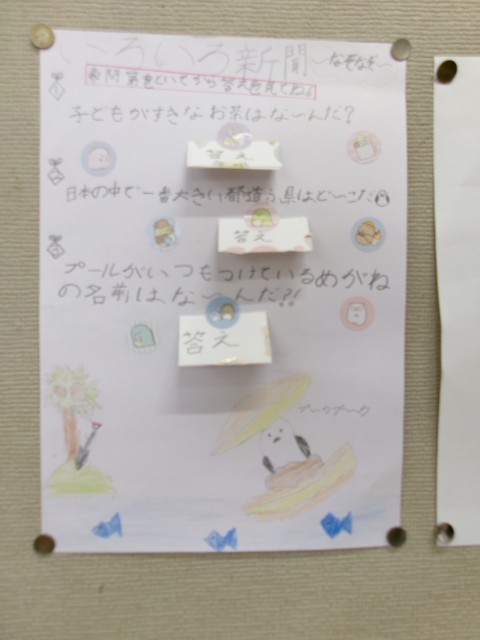 いろいろ新聞 〜なぞなぞ〜
※問題をといてから答えを見てね。
子どもがすきなお茶はな〜んだ？
答え
日本の中で一番大きい都道う県はど〜こだ
答え
プールがいつもつけているめがね
の名前はな〜んだ?!
答え
プークプーク